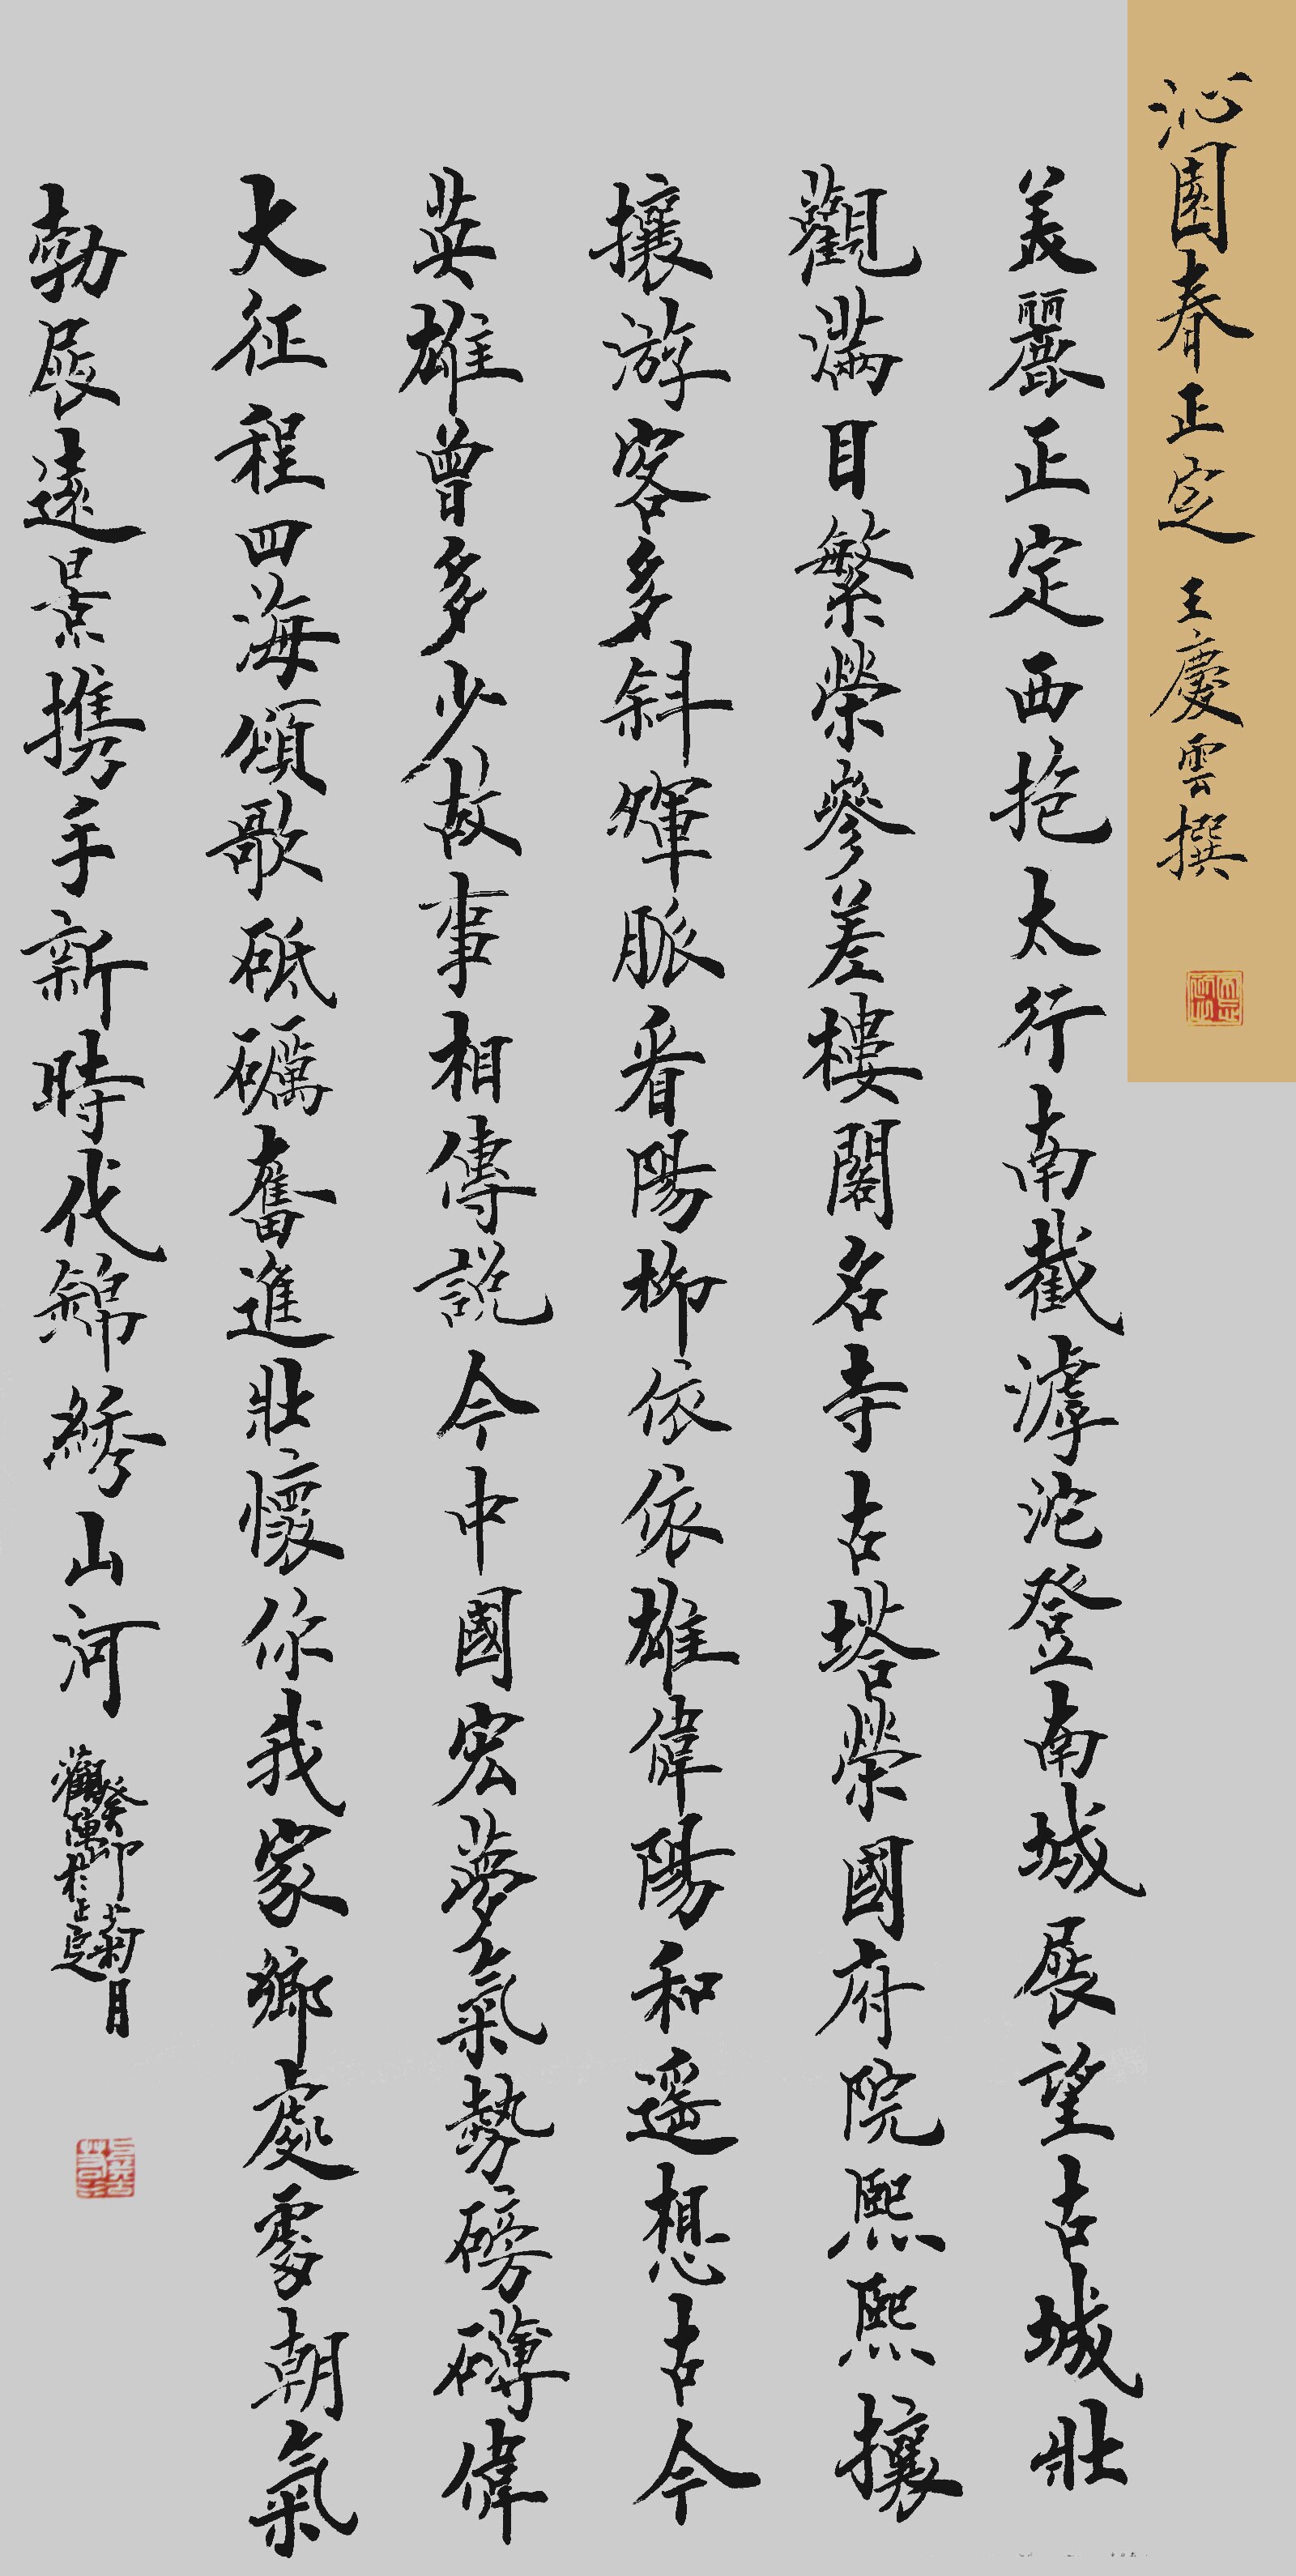 沁園春正定 王慶雲撰
美麗正定西抱太行南截滹沱登南城展望古城壯
觀滿目繁榮參差樓閣名寺古塔榮國府院熙熙攘
攘游客多斜暉脈看陽柳依依雄偉陽和遥想古今
英雄曾多少故事相傳説今中國宏夢氣勢磅礴偉
大征程四海頌歌砥礪奮進壯懷你我家鄉處處朝氣
勃展遠景携手新時代錦綉山河
癸卯菊月
於正定